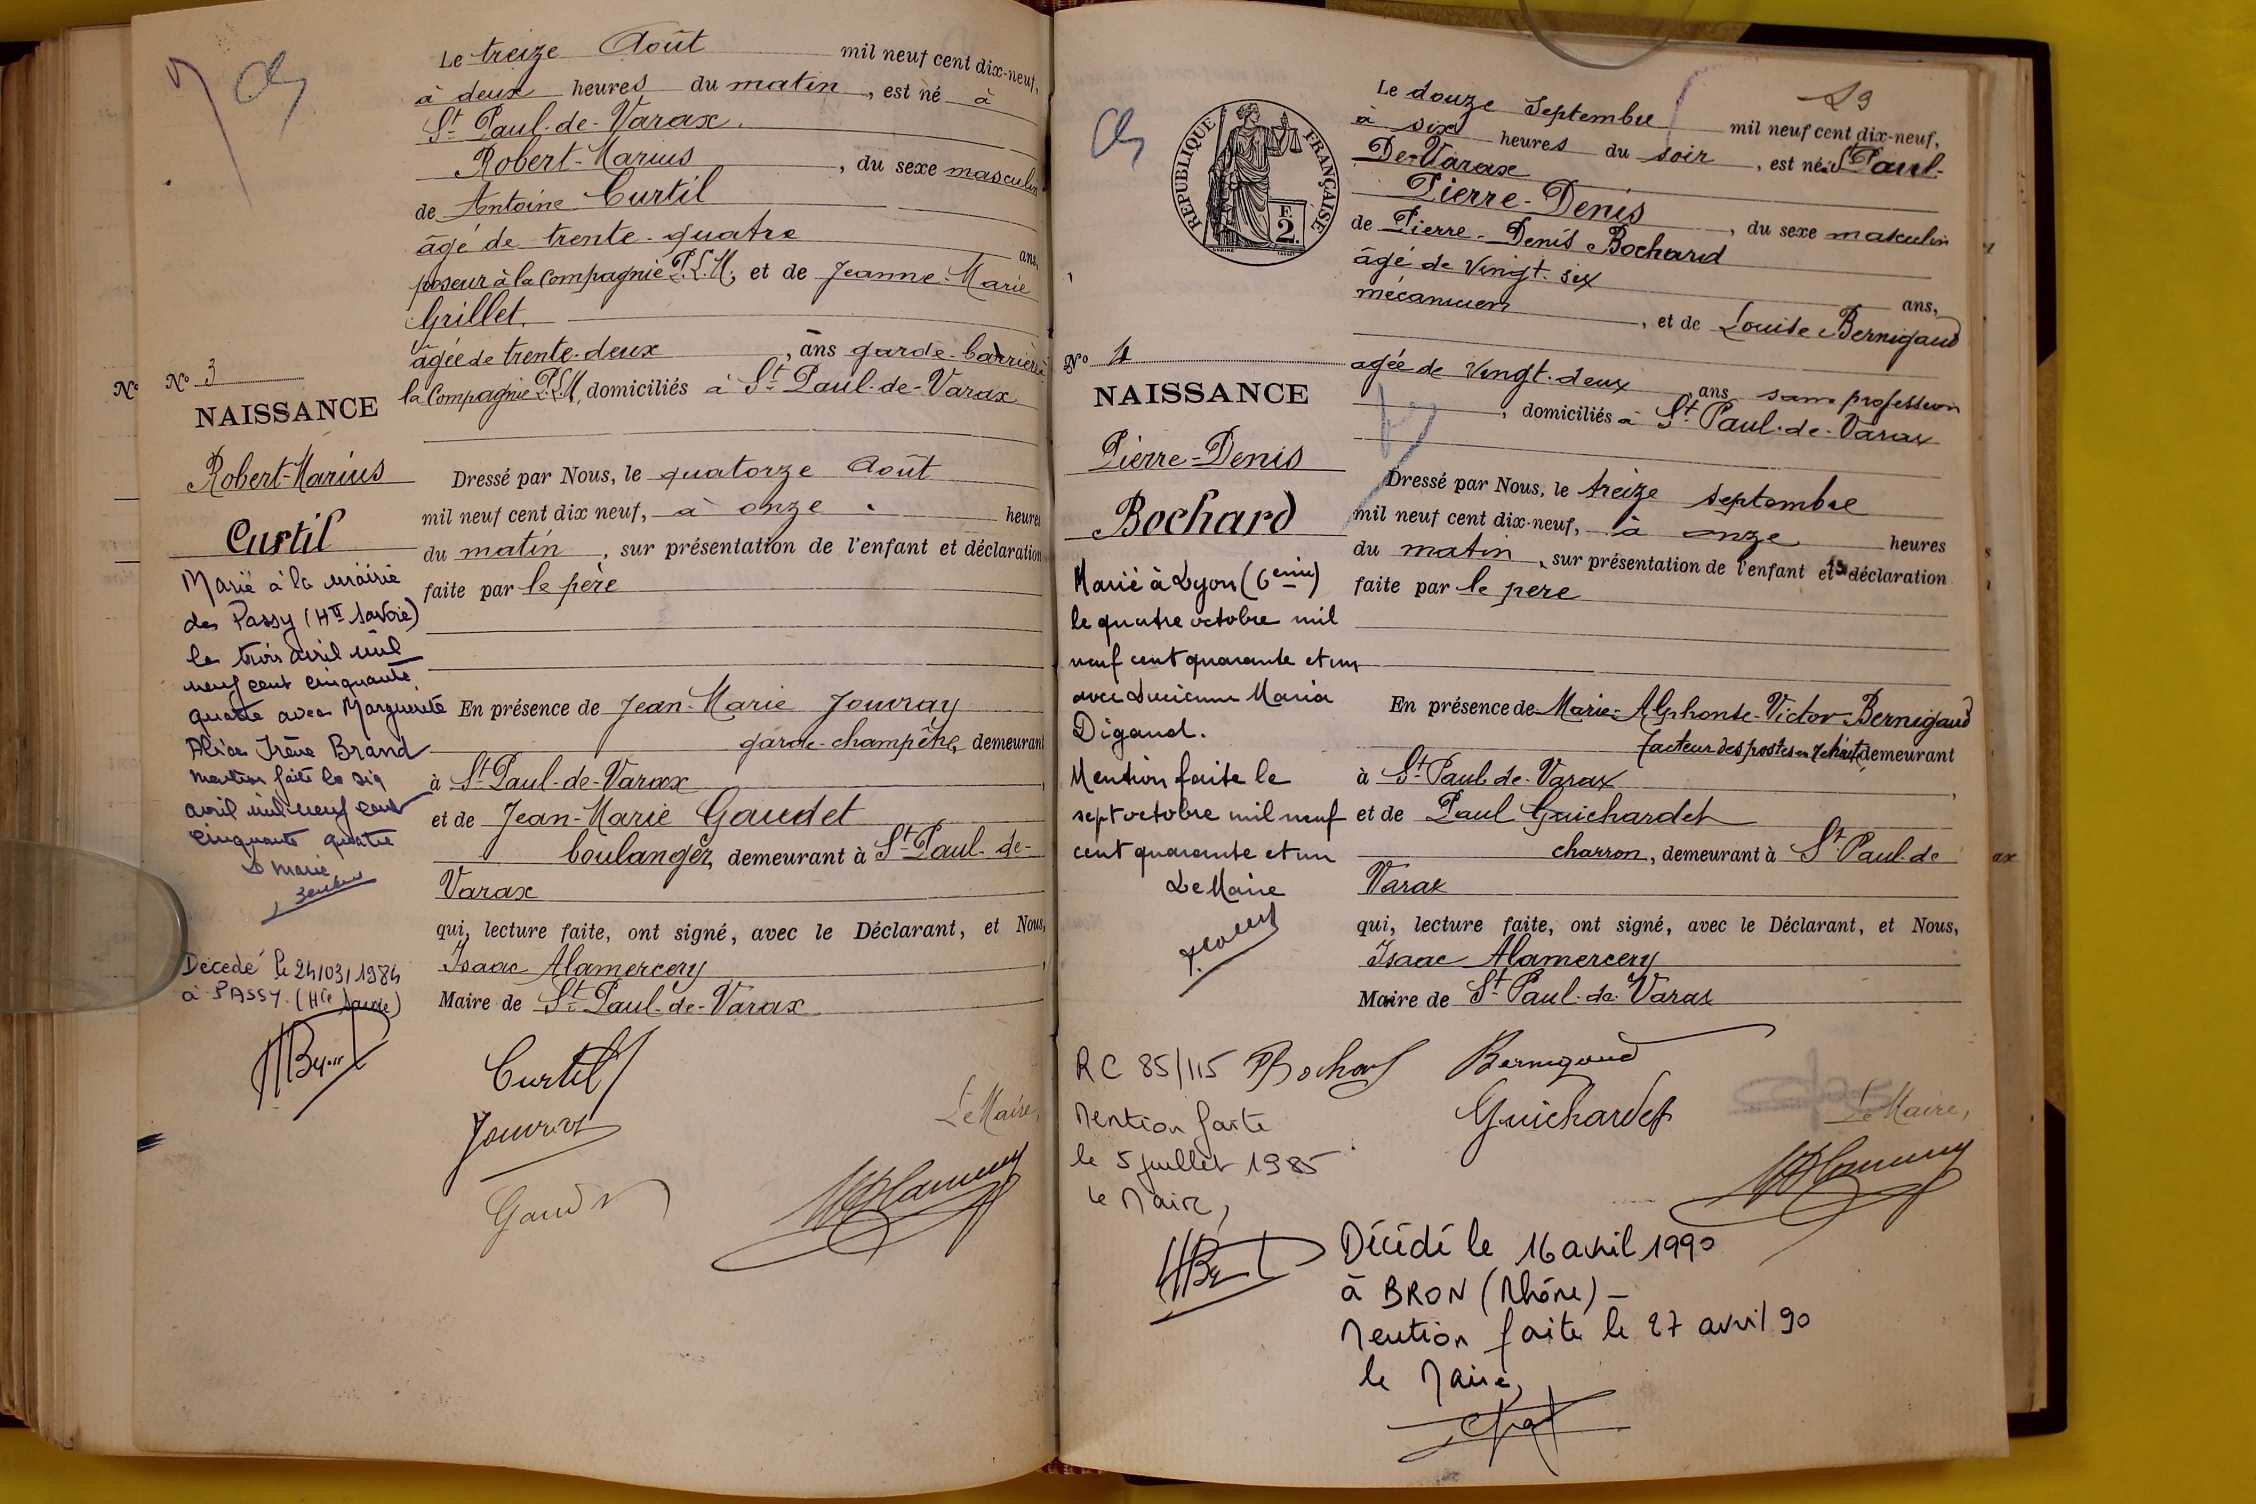 Le treize Août mil neuf cent dix-neuf,
à deux heures du matin, est né à
St Paul-de-Varax.
Robert-Marius, du sexe masculin
de Antoine Curtil
âgé de trente-quatre ans,
poseur à la Compagnie P.L.M., et de Jeanne-Marie
Grillet.
âgée de trente-deux, ans garde-barrière à
la Compagnie P.L.M, domiciliés à St Paul-de-Varax
No
No 3
NAISSANCE
Robert-Marius
Curtil
Marié à la mairie
de Passy (Hte Savoie)
le trois avril mil
neuf cent cinquante
quatre avec Marguerite
Alice Irène Brand
mention faite le six
avril mil neuf cent
cinquante quatre
Le Maire
Décédé le 24/03/1984
à PASSY. (Hte Savoie)
Dressé par Nous, le quatorze Août
mil neuf cent dix neuf, à onze heures
du matin, sur présentation de l'enfant et déclaration
faite par le père
En présence de Jean-Marie Jouvray
garde-champêtre, demeurant
à St Paul-de-Varax
et de Jean-Marie Gaudet
boulanger, demeurant à St Paul-de-
Varax
qui, lecture faite, ont signé, avec le Déclarant, et Nous,
Isaac Alamercery
Maire de St Paul-de-Varax
Curtil
Jouvray
Le Maire,
Gaudet
29
RÉPUBLIQUE FRANÇAISE
F.
2.
Le douze Septembre mil neuf cent dix-neuf,
à six heures du soir, est né à St Paul-
De-Varax
Pierre-Denis, du sexe masculin
de Pierre-Denis Bochard
âgé de vingt-six ans,
mécanicien, et de Louise Bernigaud
agée de vingt-deux, ans sans profession
, domiciliés à St Paul-de-Varax
No 4
NAISSANCE
Pierre-Denis
Bochard
Marié à Lyon (6eme)
le quatre octobre mil
neuf cent quarante et un
avec Lucienne Maria
Digaud.
Mention faite le
sept octobre mil neuf
cent quarante et un
Le Maire
Dressé par Nous, le treize septembre
mil neuf cent dix-neuf, à onze heures
du matin, sur présentation de l'enfant et déclaration
faite par le père
En présence de Marie-Alphonse-Victor Bernigaud
facteur des postes en retraite, demeurant
à St Paul-de-Varax
et de Paul Guichardet
charron, demeurant à St Paul-de
Varax
qui, lecture faite, ont signé, avec le Déclarant, et Nous,
Isaac Alamercery
Maire de St Paul-de-Varax
RC 85/115
Bochard
Bernigaud
Guichardet
Le Maire,
Mention faite
le 5 juillet 1985
le Maire,
Décédé le 16 avril 1990
à BRON (Rhône) –
Mention faite le 27 avril 90
le Maire,